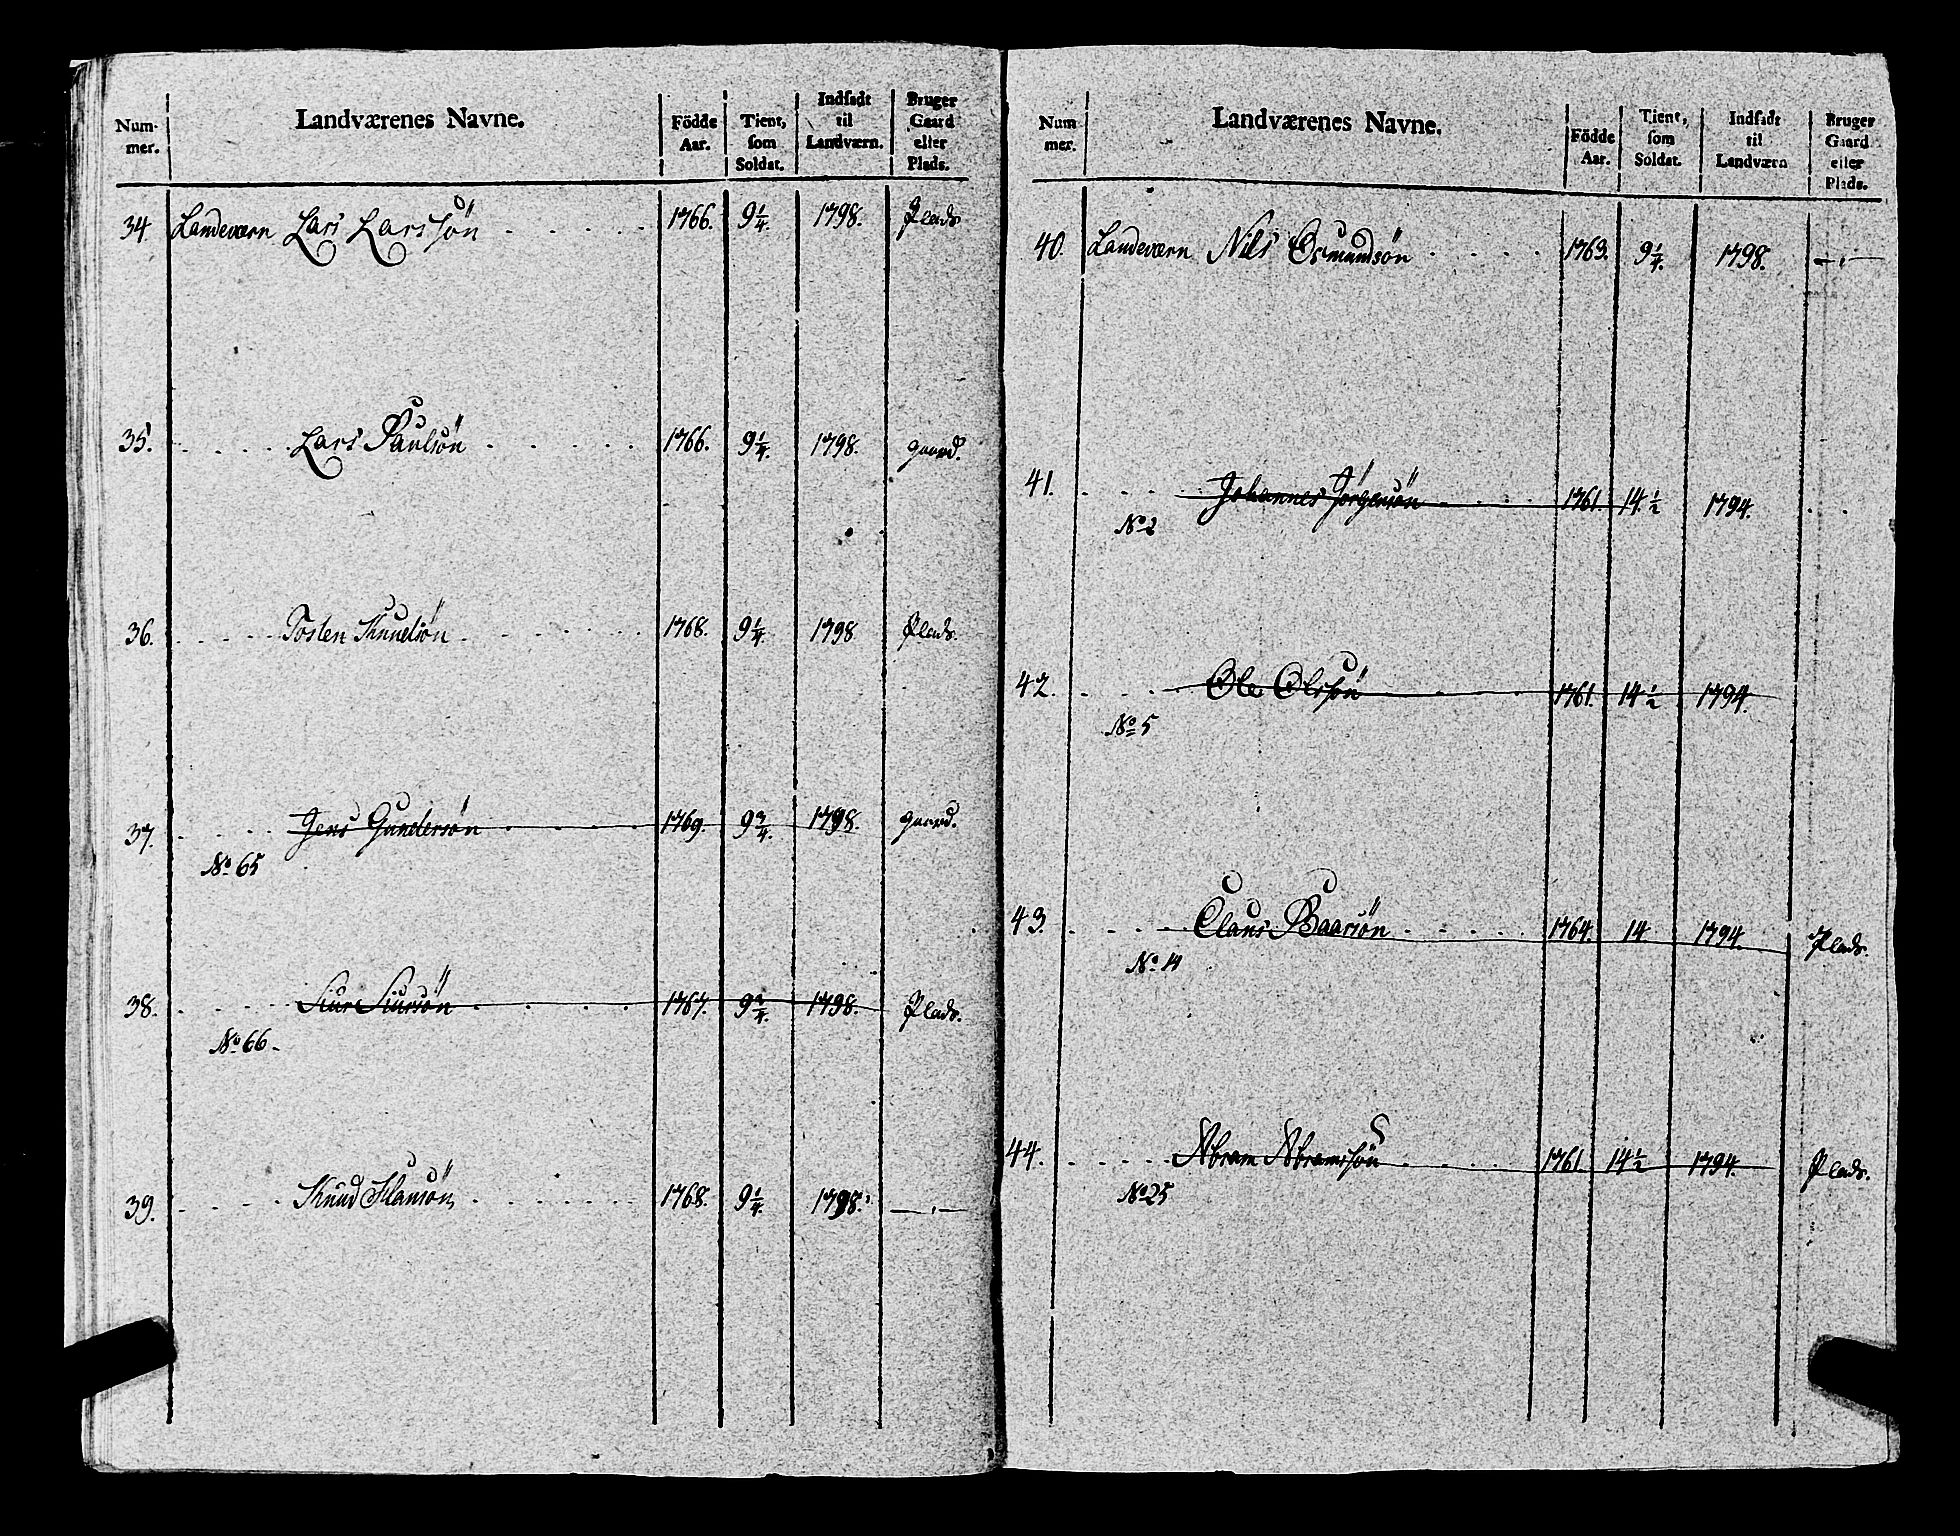 Num-
mer.
Landværenes Navne.
Födde
Aar.
Tient,
som
Soldat.
Indsadt
til
Landværn.
Bruger
Gaard
eller
Plads.
34. Landeværn Lars Larssön 1766. 9 1/4. 1798. Plads
35. Lars Paulsön 1766. 9 1/4. 1798. gaard.
36. Tosten Knudsön 1768. 9 1/4. 1798 Plads.
37. Jens Gundersön 1769. 9 3/4. 1798. gaard.
No 65
38. Siur Siursön 1767. 9 3/4. 1798. Plads.
No 66.
39. Knud Hansön 1768. 9 1/4. 1798. —"—
Num
mer.
Landværenes Navne.
Födde
Aar.
Tient,
som
Soldat.
Indsadt
til
Landværn
Bruger
Gaard
eller
Plads.
40. Landeværn Nils Osmundsön 1763. 9 1/4. 1798. —"—
41. Johannes Jörgensön 1761. 14 1/2 1794.
No 2
42. Ole Olssön 1761. 14 1/2 1794.
No 5
43. Claus Baarsön 1764. 14 1794. Plads.
No 14
44. Abram Abramssön 1761 14 1/2 1794. Plads.
No 25